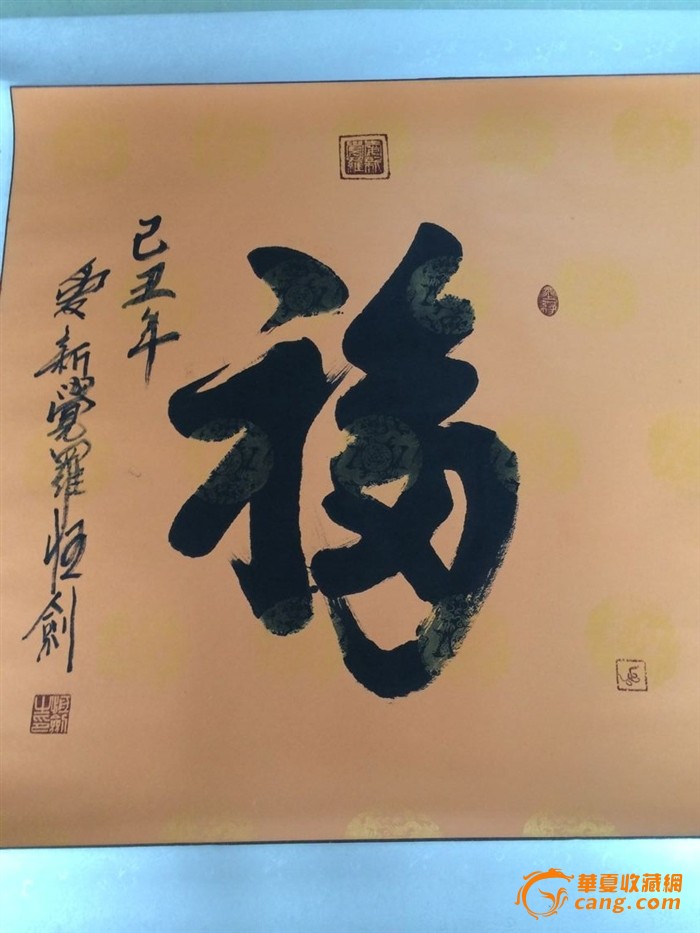 福
己丑年
愛新覺羅恒劍
華夏收藏網
cang.com